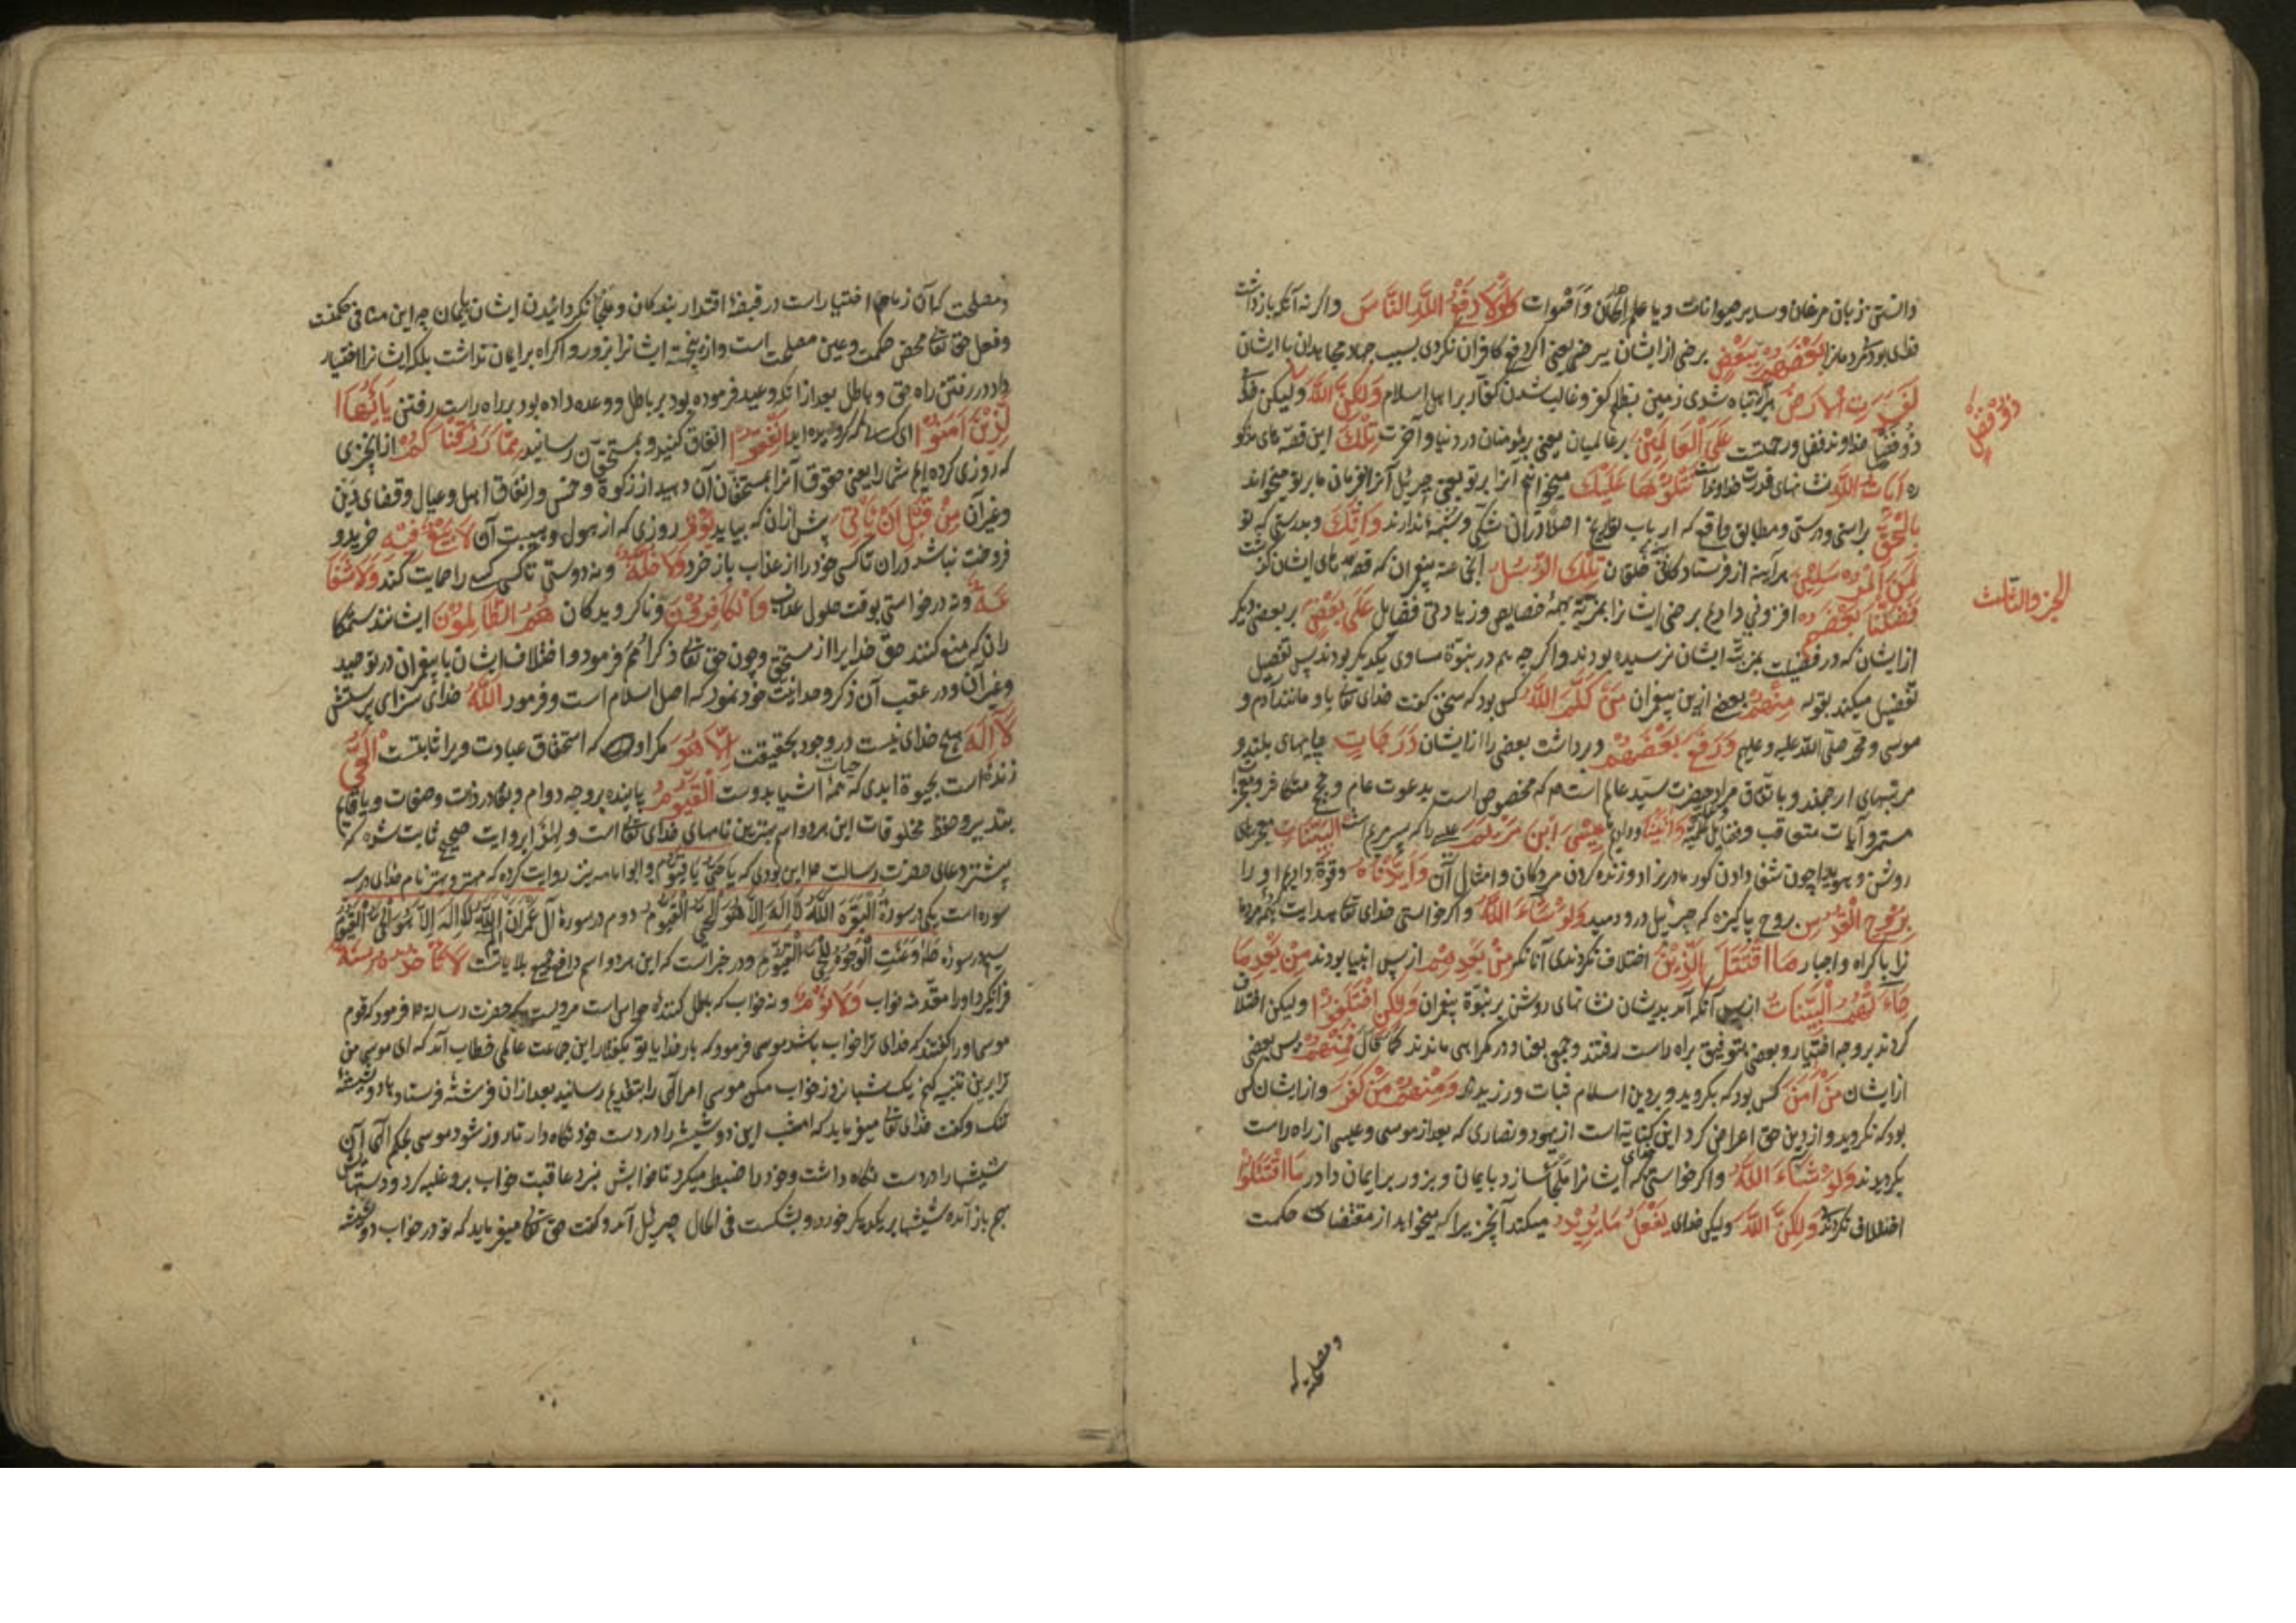 دانستن زبان مرغان و سایر حیوانات و یا علم الحان و اصوات وَلَوْلَا دَفْعُ اللَّهِ النَّاسَ و اگر نه آنکه بازداشت
خدای بود مر مردمانرا بَعْضَهُمْ بِبَعْضٍ برخی از ایشان ببرخی یعنی اگر دفع کافران نکردی بسبب جهاد مجاهدان با ایشان
لَفَسَدَتِ الْأَرْضُ هر آینه تباه شدی زمین بظلم کفر و غالب شدن کفار بر اهل اسلام وَلَكِنَّ اللَّهَ و لیکن خدا
ذُو فَضْلٍ خداوند فضل و رحمتست عَلَى الْعَالَمِينَ بر عالمیان یعنی بر مؤمنان در دنیا و آخرت تِلْكَ این قصه های مذکو
ذُو فَضْلٍ
ره آيَاتُ اللَّهِ نشانهای قدرت خداوند است نَتْلُوهَا عَلَيْكَ میخوانیم آنرا بر تو یعنی جبرئیل آنرا بفرمان ما بر تو میخواند
بِالْحَقِّ براستی و درستی و مطابق واقع که ارباب تواریخ اصلا در آن شکی و شبهه ندارند وَإِنَّكَ و بدرستی که تو
لَمِنَ الْمُرْسَلِينَ هر آینه از فرستادگانی بخلقان تِلْكَ الرُّسُلُ این جماعت پیغمبران که قصه های ایشان گذشت
الجزو الثالث
فَضَّلْنَا بَعْضَهُمْ افزونی دادیم برخی ایشانرا بمزیت خصایص و زیادتی فضایل عَلَى بَعْضٍ بر بعضی دیگر
از ایشان که در فضیلت بمزیت ایشان نرسیده بودند و اگر چه هم در نبوة مساوی یکدیگر بودند پس تفصیل
تفضیل میکند بقوله مِنْهُمْ بعضی ازین پیغمبران مَنْ كَلَّمَ اللَّهُ کس بود که سخن گفت خدای تعالی باو مانند آدم و
موسی و محمد صلی الله علیه و علیهم وَرَفَعَ بَعْضَهُمْ و برداشت بعضی را از ایشان دَرَجَاتٍ پایهای بلند و
مرتبهای ارجمند و باتفاق مراد حضرت سید عالم است که مخصوص است بدعوت عام و حجج
مستمر و آیات متعاقب و فضایل وَآتَيْنَا و دادیم عِيسَى ابْنَ مَرْيَمَ عیسی را که پسر مریم است الْبَيِّنَاتِ معجزهای
روشن و هویدا چون شفا دادن کور مادرزاد و زنده کردن مردگان و امثال آن وَأَيَّدْنَاهُ و قوة دادیم او را
بِرُوحِ الْقُدُسِ بروح پاکیزه که جبرئیل در و دمید وَلَوْ شَاءَ اللَّهُ و اگر خواستی خدای تعالی هدایت همه مردما
نرا باکراه و اجبار مَا اقْتَتَلَ الَّذِينَ اختلاف نکردندی آنانکه مِنْ بَعْدِهِمْ از پس انبیا بودند مِنْ بَعْدِ مَا
جَاءَتْهُمُ الْبَيِّنَاتُ از پس آنکه آمد بدیشان نشانهای روشن بر نبوة پیغمبران وَلَكِنِ اخْتَلَفُوا و لیکن اختلاف
کردند بر وجه اختیار و بعضی بتوفیق براه راست رفتند و جمعی بعناد در گمراهی ماندند کما قال فَمِنْهُمْ پس بعضی
از ایشان مَنْ آمَنَ کس بود که بگروید و بر دین اسلام ثبات ورزیدند وَمِنْهُمْ مَنْ كَفَرَ و از ایشان کس
بود که نگروید و از دین حق اعراض کرد این کنایتست از یهود و نصاری که بعد از موسی و عیسی از راه راست
بگردیدند وَلَوْ شَاءَ اللَّهُ و اگر خواستی خدای که ایشانرا ملجا سازد بایمان و بزور بر ایمان دارد مَا اقْتَتَلُوا
اختلاف نکردند وَلَكِنَّ اللَّهَ و لیکن خدای يَفْعَلُ مَا يُرِيدُ میکند آنچیزیرا که میخواهد از مقتضیات حکمت
و مصلحت که
و مصلحت که آن زمام اختیار است در قبضهٔ اقتدار بندگان و ملجا نگردانیدن ایشان بایمان چه این منافی حکمتست
و فعل حق تعالی محض حکمت و عین مصلحت است و ازینجهة ایشانرا بزور و اکراه بر ایمان نداشت بلکه ایشانرا اختیار
داد در رفتن راه حق و باطل بعد از آنکه وعید فرموده بود بر باطل و وعده داده بود بر راه راست رفتن يَا أَيُّهَا
الَّذِينَ آمَنُوا ای کسانی که گرویده اید أَنْفِقُوا انفاق کنید و بمستحقان رسانید مِمَّا رَزَقْنَاكُمْ از آنچیزی
که روزی کرده ایم شما را یعنی حقوق آنرا بمستحقان آن دهید از زکوة و خمس و انفاق اهل و عیال و قضای دین
و غیر آن مِنْ قَبْلِ أَنْ يَأْتِيَ پیش از آن که بیاید يَوْمٌ روزی که از هول و هیبت آن لَا بَيْعٌ فِيهِ خرید و
فروخت نباشد در آن تا کسی خود را از عذاب باز خرد وَلَا خُلَّةٌ و نه دوستی تا کسی کسی را حمایت کند وَلَا شَفَا
عَةٌ و نه درخواستی بوقت حلول عذاب وَالْكَافِرُونَ و ناگرویدگان هُمُ الظَّالِمُونَ ایشانند ستمکا
ران که منع کنند حق خدایرا از مستحق و چون حق تعالی ذکر امم فرمود و اختلاف ایشان با پیغمبران در توحید
و غیر آن و در عقب آن ذکر وحدانیت خود نمود که اصل اسلام است و فرمود اللَّهُ خدای سزای پرستش
لَا إِلَهَ هیچ خدای نیست در وجود بحقیقت إِلَّا هُوَ مگر او که استحقاق عبادت ویرا ثابتست الْحَيُّ
زنده است بحیوة ابدی که حیات همه اشیا بدوست الْقَيُّومُ پاینده بر وجه دوام و بقا در ذات و صفات و یا قایم
بتدبیر و حفظ مخلوقات این هر دو اسم بهترین نامهای خدای تعالی است و لهذا بروایت صحیح ثابت شده که
بیشتر دعای حضرت رسالت این بودی که یا حی یا قیوم و ابو امامه نیز روایت کرده که مهتر و بهتر نام خدای در سه
سوره است یکی در سورة البقرة الله لا اله الا هو الحی القیوم دوم در سورهٔ آل عمران الم الله لا اله الا هو الحی القیوم
سیم در سورهٔ طه و عنت الوجوه للحی القیوم و در خبر است که این هر دو اسم دافع جمیع بلایاست لَا تَأْخُذُهُ سِنَةٌ
فرا نگیرد او را مقدمه خواب وَلَا نَوْمٌ و نه خواب که باطل کنندهٔ حواس است مرویست که حضرت رسالة فرمود که قوم
موسی او را گفتند که خدای ترا خواب باشد موسی فرمود که بار خدایا تو این جماعت خطاب آمد که ای موسی من
ترا برین تنبیه کنم یک شبانروز خواب مکن موسی امر الهی را بتقدیم رسانید بعد از آن فرشتهٔ فرستاد با دو شیشهٔ
تنک و گفت خدای تعالی میفرماید که امشب این دو شیشه را در دست خود نگاه دار تا روز شود موسی بحکم الهی آن
شیشها را در دست نگاه داشت و خود را ضبط میکرد تا خوابش نبرد عاقبت خواب برو غلبه کرد و دستهاش
بهم باز آمده شیشها بر یکدیگر خورد و بشکست فی الحال جبرئیل آمد و گفت حق تعالی میفرماید که تو در خواب دو شیشه